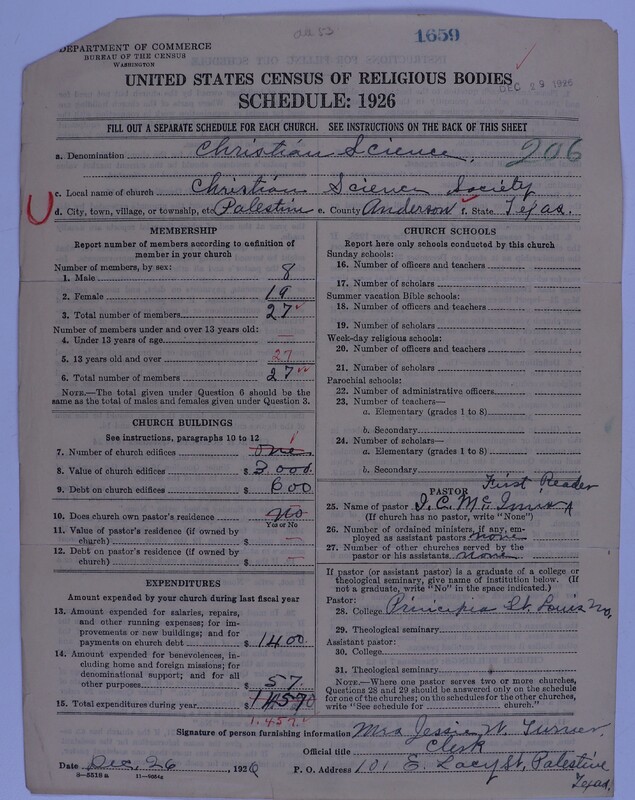 aa53
1659
DEPARTMENT OF COMMERCE
BUREAU OF THE CENSUS
WASHINGTON
DEC 29 1926
UNITED STATES CENSUS OF RELIGIOUS BODIES
SCHEDULE: 1926
FILL OUT A SEPARATE SCHEDULE FOR EACH CHURCH. SEE INSTRUCTIONS ON THE BACK OF THIS SHEET
a. Denomination Christian Science. 206
c. Local name of church Christian Science Society
U d. City, town, village, or township, etc. Palestine e. County Anderson f. State Texas.
MEMBERSHIP
Report number of members according to definition of
member in your church
Number of members, by sex:
1. Male 8
2. Female 19
3. Total number of members 27
Number of members under and over 13 years old:
4. Under 13 years of age —
5. 13 years old and over 27
6. Total number of members 27
NOTE.—The total given under Question 6 should be the
same as the total of males and females given under Question 3.
CHURCH BUILDINGS
See instructions, paragraphs 10 to 12
7. Number of church edifices one 1
8. Value of church edifices $ 3000.
9. Debt on church edifices $ 600
10. Does church own pastor's residence no
Yes or No
11. Value of pastor's residence (if owned by
church) $ —
12. Debt on pastor's residence (if owned by
church) $ —
EXPENDITURES
Amount expended by your church during last fiscal year
13. Amount expended for salaries, repairs,
and other running expenses; for im-
provements or new buildings; and for
payments on church debt $ 1400.
14. Amount expended for benevolences, in-
cluding home and foreign missions; for
denominational support; and for all
other purposes $ 57.
15. Total expenditures during year $ 14570
1,457.
CHURCH SCHOOLS
Report here only schools conducted by this church
Sunday schools:
16. Number of officers and teachers
17. Number of scholars
Summer vacation Bible schools:
18. Number of officers and teachers
19. Number of scholars
Week-day religious schools:
20. Number of officers and teachers
21. Number of scholars
Parochial schools:
22. Number of administrative officers
23. Number of teachers—
a. Elementary (grades 1 to 8)
b. Secondary
24. Number of scholars—
a. Elementary (grades 1 to 8)
b. Secondary
PASTOR First Reader
25. Name of pastor
(If church has no pastor, write "None")
26. Number of ordained ministers, if any, em-
ployed as assistant pastors none
27. Number of other churches served by the
pastor or his assistants none
If pastor (or assistant pastor) is a graduate of a college or
theological seminary, give name of institution below. (If
not a graduate, write "No" in the space indicated.)
Pastor:
28. College Principia St. Louis Mo.
29. Theological seminary
Assistant pastor:
30. College
31. Theological seminary
NOTE.—Where one pastor serves two or more churches,
Questions 28 and 29 should be answered only on the schedule
for one of the churches; on the schedules for the other churches,
write "See schedule for church."
Signature of person furnishing information Mrs Jessie W. Turner
Official title Clerk
Date Dec, 26, 1926 P. O. Address 101 E. Lacy St, Palestine
Texas.
8—5518 a